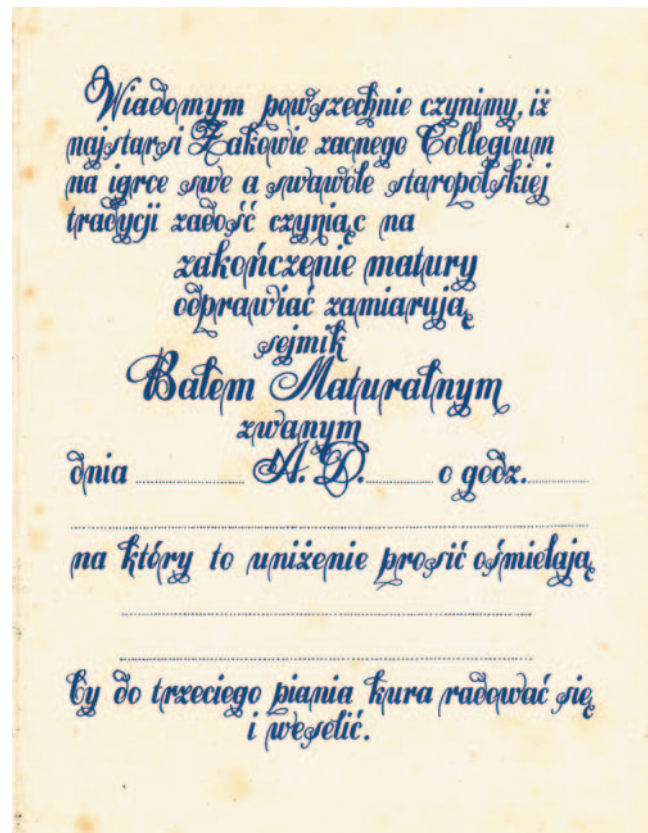 Wiadomym powszechnie czynimy, iż
najstarsi Żakowie zacnego Collegium
na igrce swe a swawole staropolskiej
tradycji zadość czyniąc na
zakończenie matury
odprawiać zamiarują
sejmik
Balem Maturalnym
zwanym
dnia .................. A. D. ........... o godz. ..........
na który to uniżenie prosić ośmielają
by do trzeciego piania kura radować się
i weselić.